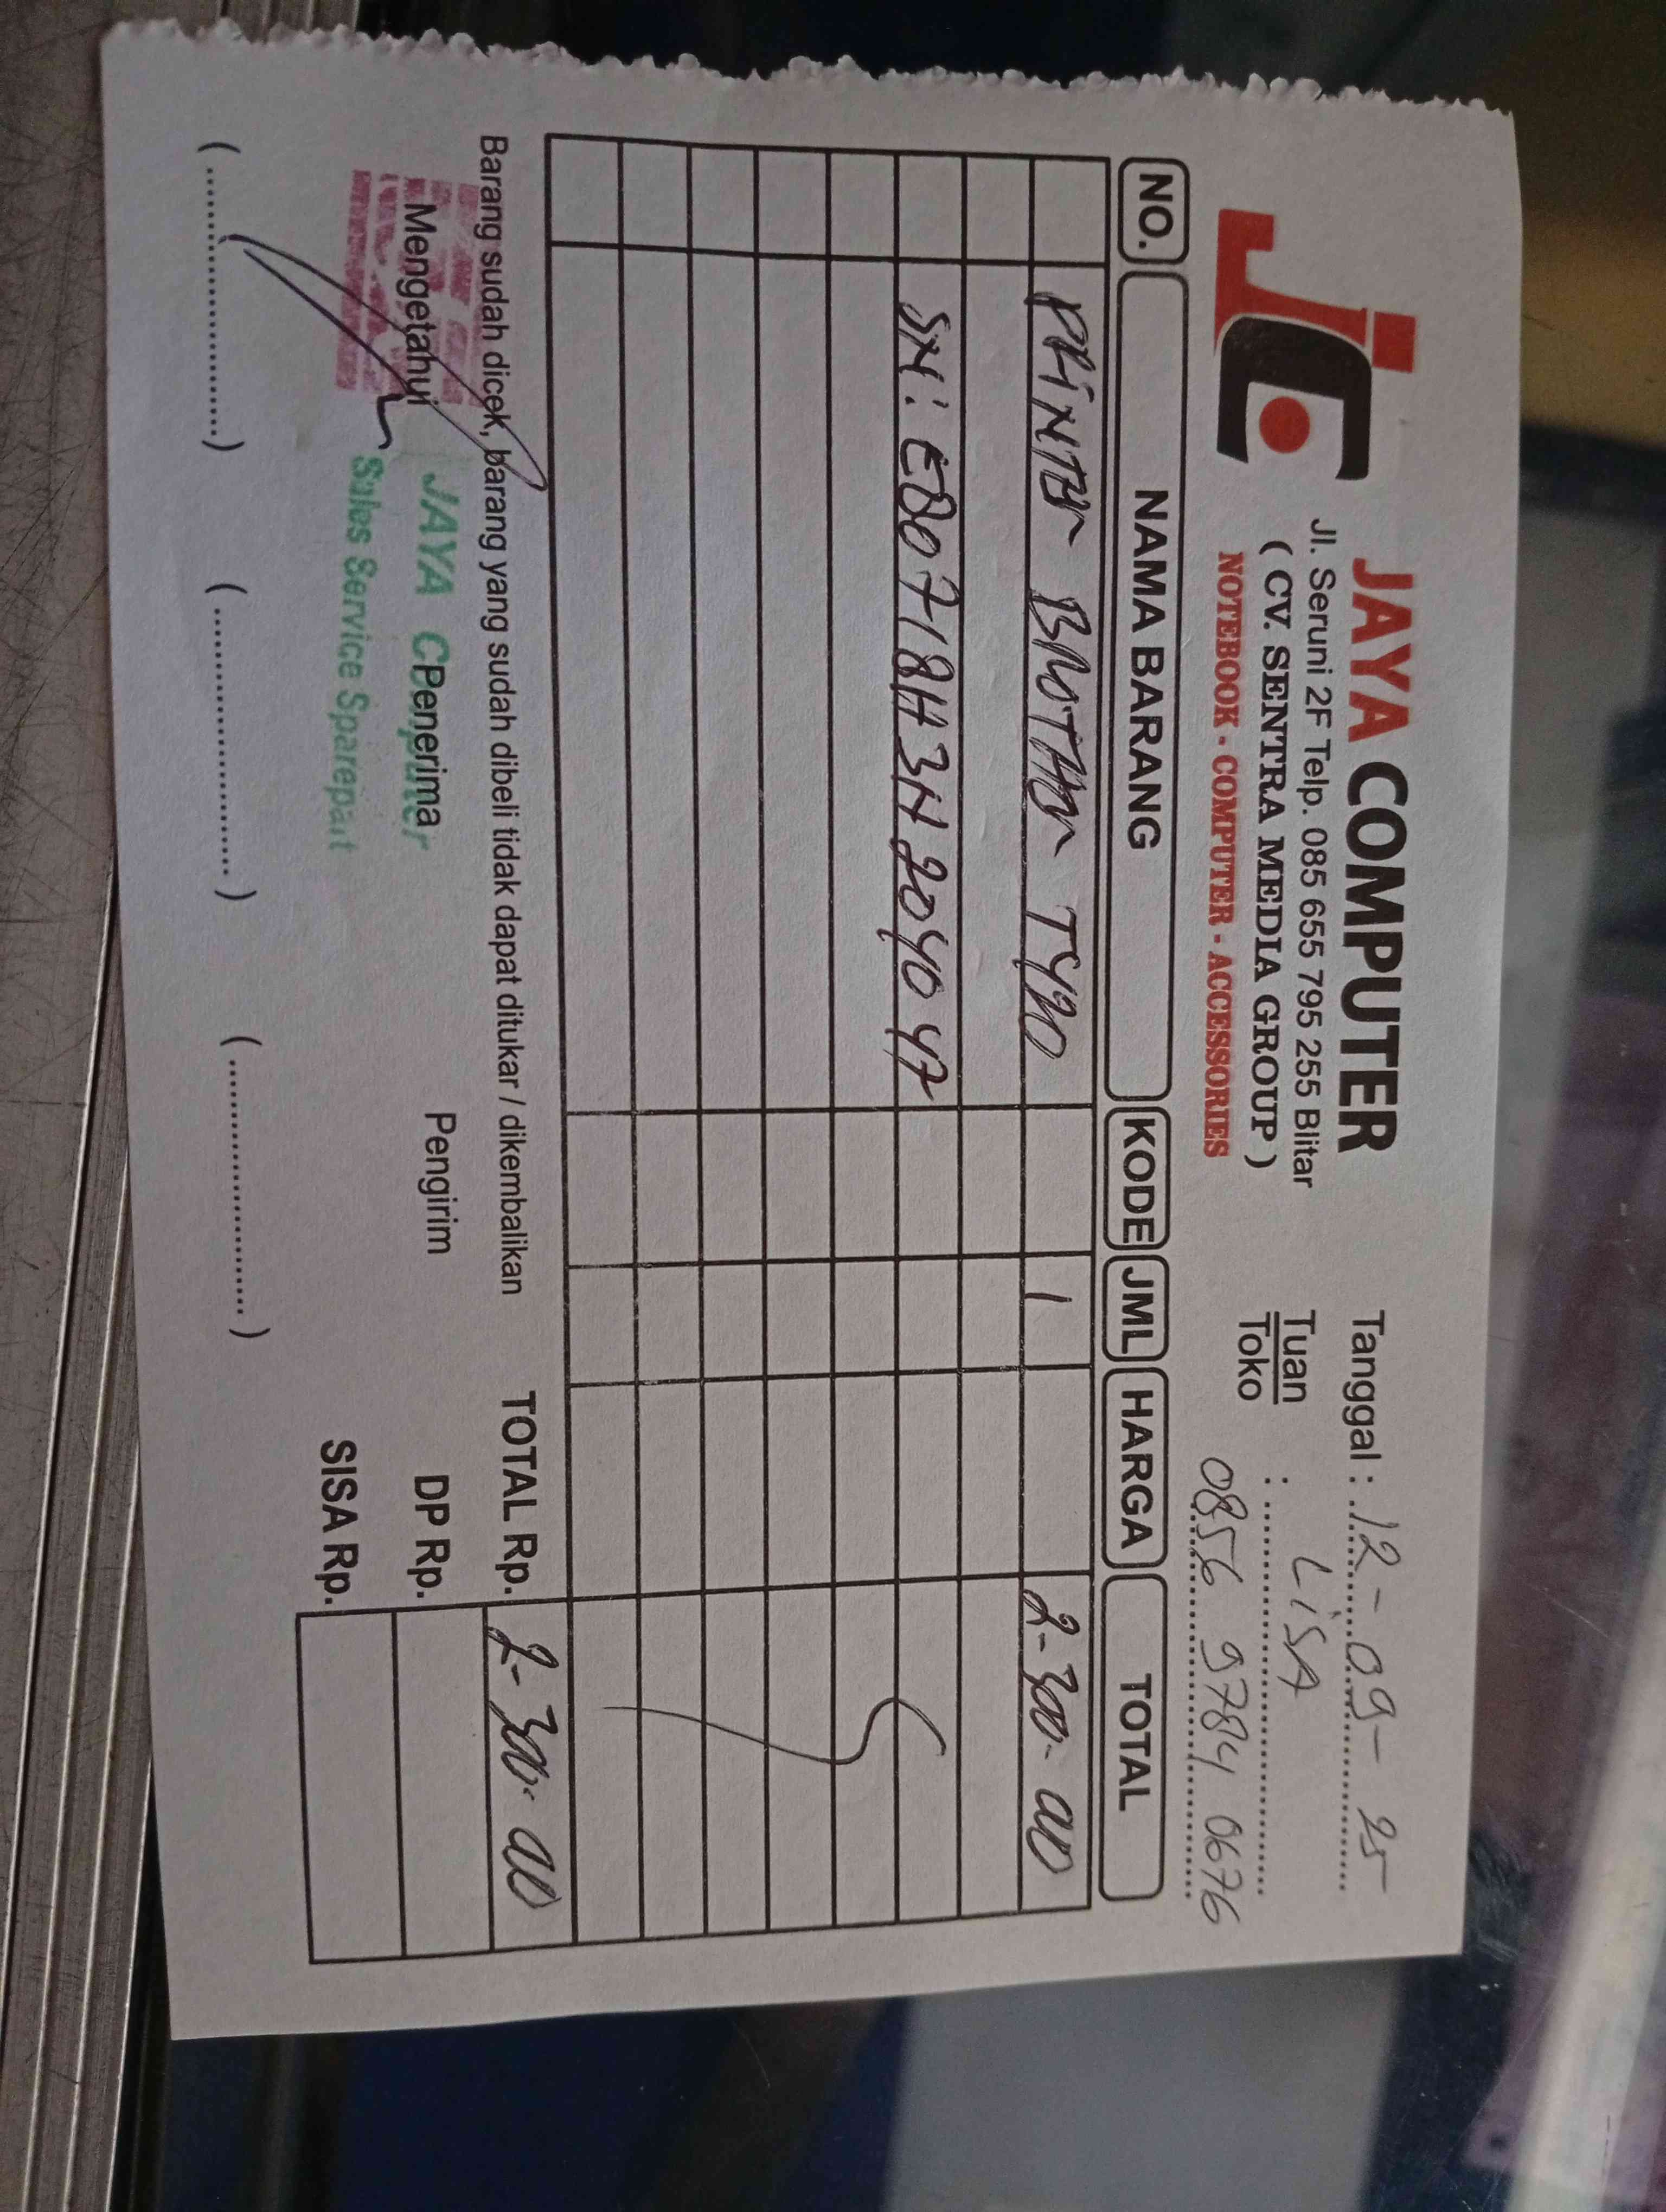 JAYA COMPUTER
Jl. Seruni 2F Telp. 085 655 795 255 Blitar
( CV. SENTRA MEDIA GROUP )
NOTEBOOK - COMPUTER - ACCESSORIES
Tanggal : 12 - 09 - 25
Tuan
Toko : LiSA
0856 9784 0676
NO. NAMA BARANG KODE JML HARGA TOTAL
PRiNTER BROTHER T420 1 2-300-000
SN: E80718H3N204047
Barang sudah dicek, barang yang sudah dibeli tidak dapat ditukar / dikembalikan
TOTAL Rp. 2-300-000
Mengetahui Penerima Pengirim
DP Rp.
JAYA Computer
Sales Service Sparepart
SISA Rp.